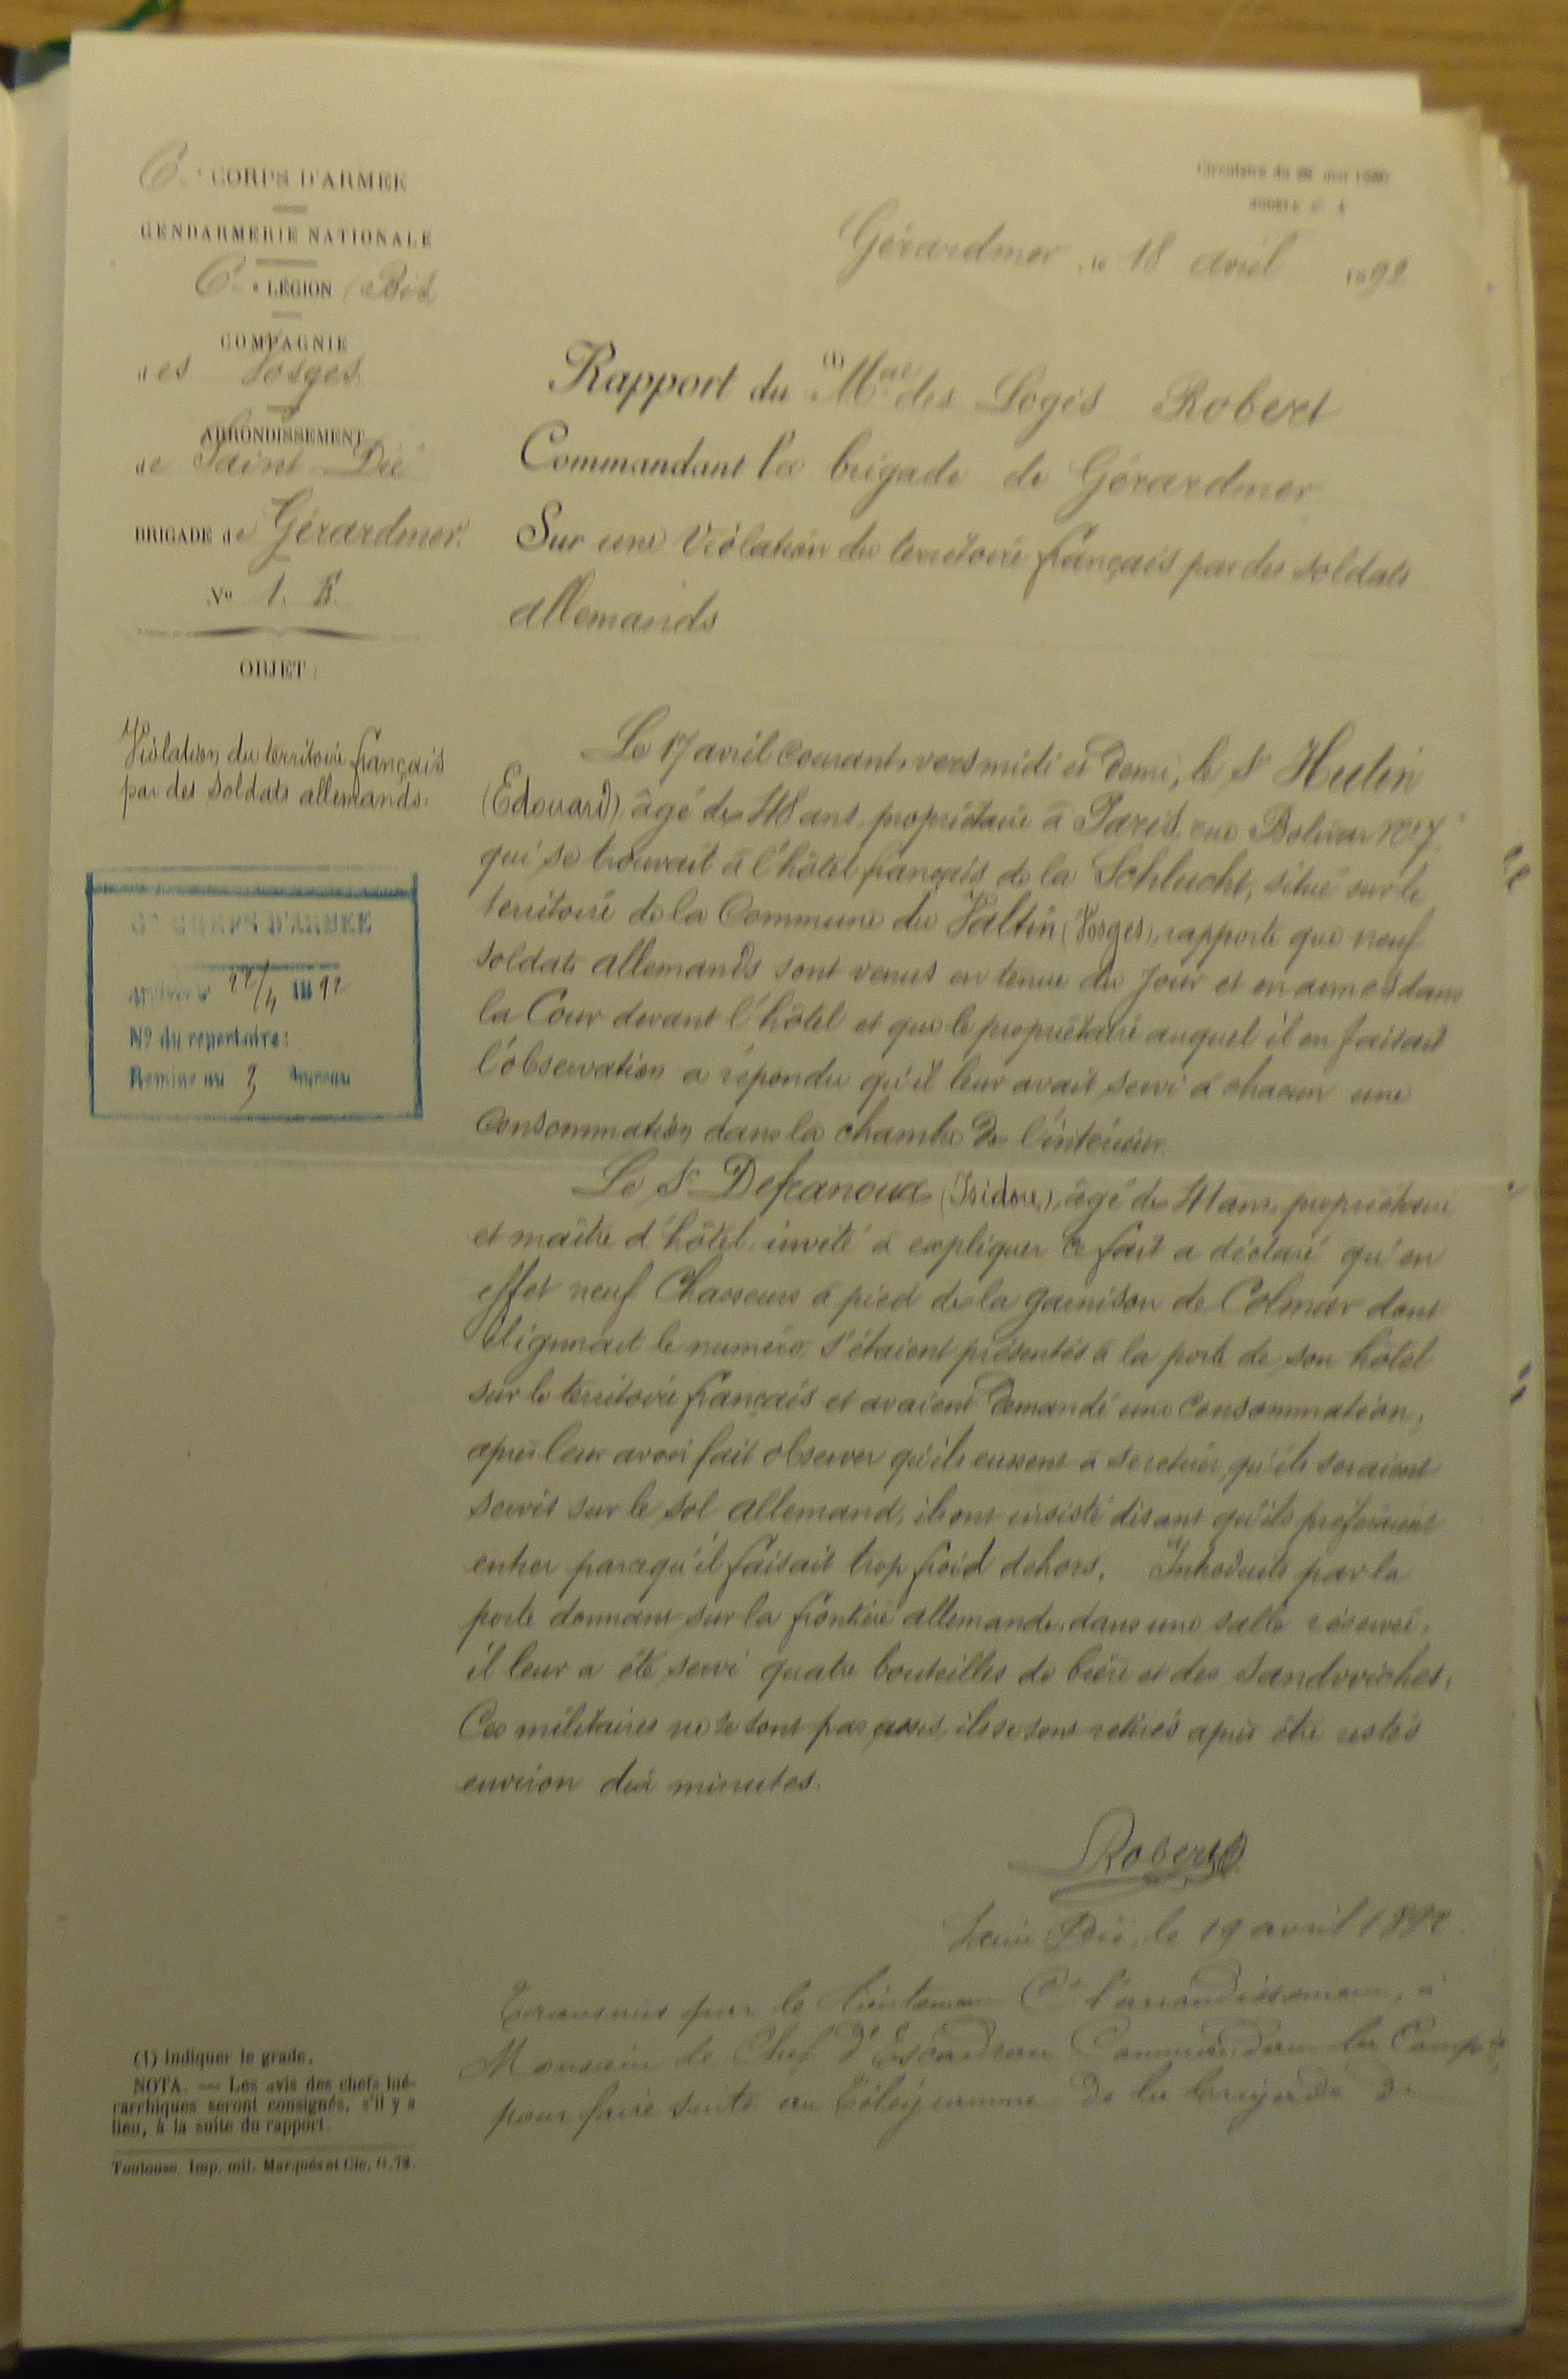 6e CORPS D'ARMEE
GENDARMERIE NATIONALE
6e LÉGION (Bis)
COMPAGNIE
des Vosges
ARRONDISSEMENT
de Saint-Dié
BRIGADE de Gérardmer
No 1. E.
OBJET :
Violation du territoire français
par des soldats allemands.
6e CORPS D'ARMÉE
22/4 1892
No du repertoire:
Remise au 3 Bureau
Circulaire du
Gérardmer, le 18 avril 1892
Rapport du (1) Mal des Logis Robert
Commandant la brigade de Gérardmer
Sur une Violation du territoire français par des soldats
allemands
Le 17 avril courant, vers midi et demi, le Sr Hutin
(Edouard), âgé de 48 ans, propriétaire à Paris, rue Bolivar No 7,
qui se trouvait à l'hôtel français de la Schlucht, situé sur le
territoire de la Commune du Valtin (Vosges), rapporte que neuf
soldats allemands sont venus en tenue du jour et en armes dans
la Cour devant l'hôtel et que le propriétaire auquel il en faisait
l'observation a répondu qu'il leur avait servi à chacun une
Consommation dans la chambre de l'intérieur.
Le Sr Defranoux (Isidore), âgé de 41 ans, propriétaire
et maître d'hôtel, invité à expliquer ce fait a déclaré qu'en
effet neuf Chasseurs à pied de la garnison de Colmar dont
il ignorait le numéro, s'étaient présentés à la porte de son hôtel
sur le territoire français et avaient demandé une consommation,
après leur avoir fait observer qu'ils eussent à se retirer, qu'ils seraient
servis sur le sol allemand, ils ont insisté disant qu'ils préféraient
entrer parcequ'il faisait trop froid dehors. Introduits par la
porte donnant sur la frontière allemande, dans une salle réservée,
il leur a été servi quatre bouteilles de bière et des sandwiches.
Ces militaires ne se sont pas assis, ils se sont retirés après être restés
environ dix minutes.
Robert
Saint Dié, le 19 avril 1892
Transmis par le lieutenant Ct l'arrondissement, à
Monsieur le Chef d'Escadron Commandant la Compie
pour faire suite au télégramme de la brigade de
(1) Indiquer le grade.
NOTA. — Les avis des chefs hié-
rarchiques seront consignés, s'il y a
lieu, à la suite du rapport.
Toulouse. Imp. mil. Marqués et Cie.